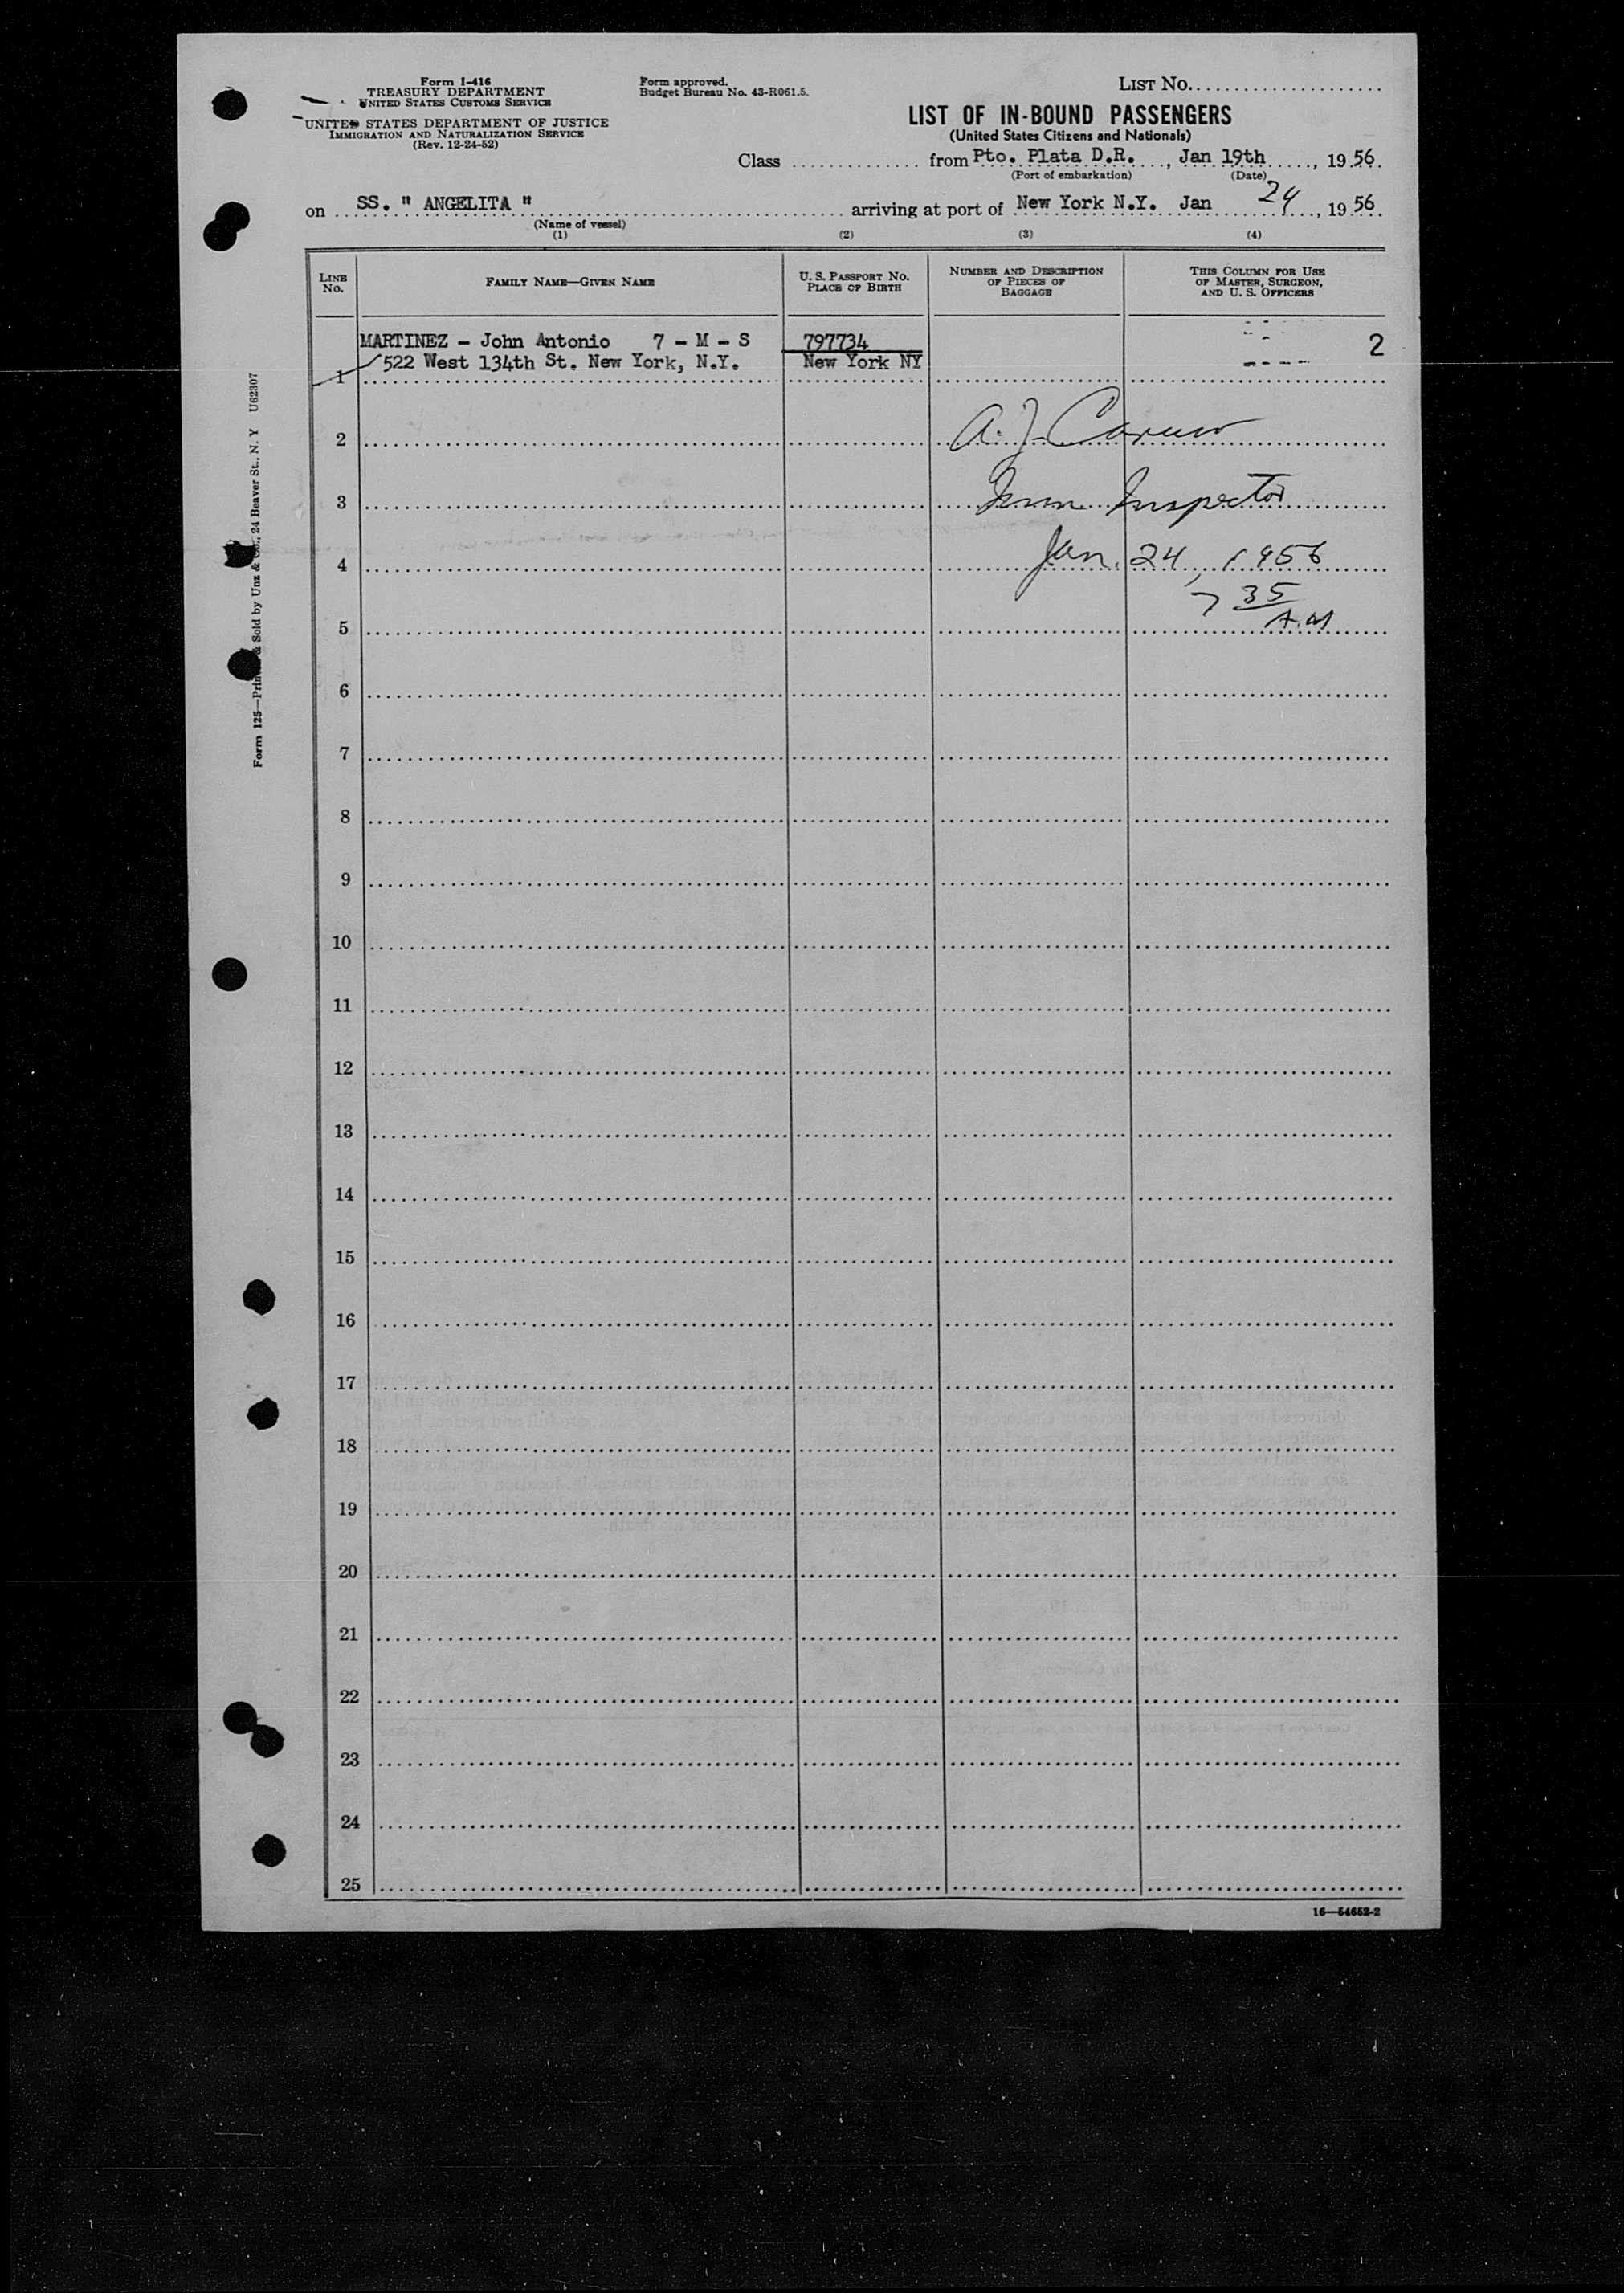 Form I-416
TREASURY DEPARTMENT
UNITED STATES CUSTOMS SERVICE
UNITED STATES DEPARTMENT OF JUSTICE
IMMIGRATION AND NATURALIZATION SERVICE
(Rev. 12-24-52)
Form approved.
Budget Bureau No. 43-R061.5.
LIST No.
LIST OF IN-BOUND PASSENGERS
(United States Citizens and Nationals)
Class from Pto. Plata D.R. , Jan 19th , 19 56
(Port of embarkation) (Date)
on SS. " ANGELITA " arriving at port of New York N.Y. Jan 24 , 19 56
(Name of vessel)
(1) (2) (3) (4)
LINE No. FAMILY NAME—GIVEN NAME U. S. PASSPORT No. PLACE OF BIRTH NUMBER AND DESCRIPTION OF PIECES OF BAGGAGE THIS COLUMN FOR USE OF MASTER, SURGEON, AND U. S. OFFICERS
MARTINEZ - John Antonio 7 - M - S 797734 2
522 West 134th St. New York, N.Y. New York NY
1
2 A. J. Caruso
3 Imm. Inspector
4 Jan. 24, 1956
7 35
5 A.M
6
7
8
9
10
11
12
13
14
15
16
17
18
19
20
21
22
23
24
25
16—54652-2
Form 125—Printed & Sold by Unz & Co., 24 Beaver St., N. Y U62307